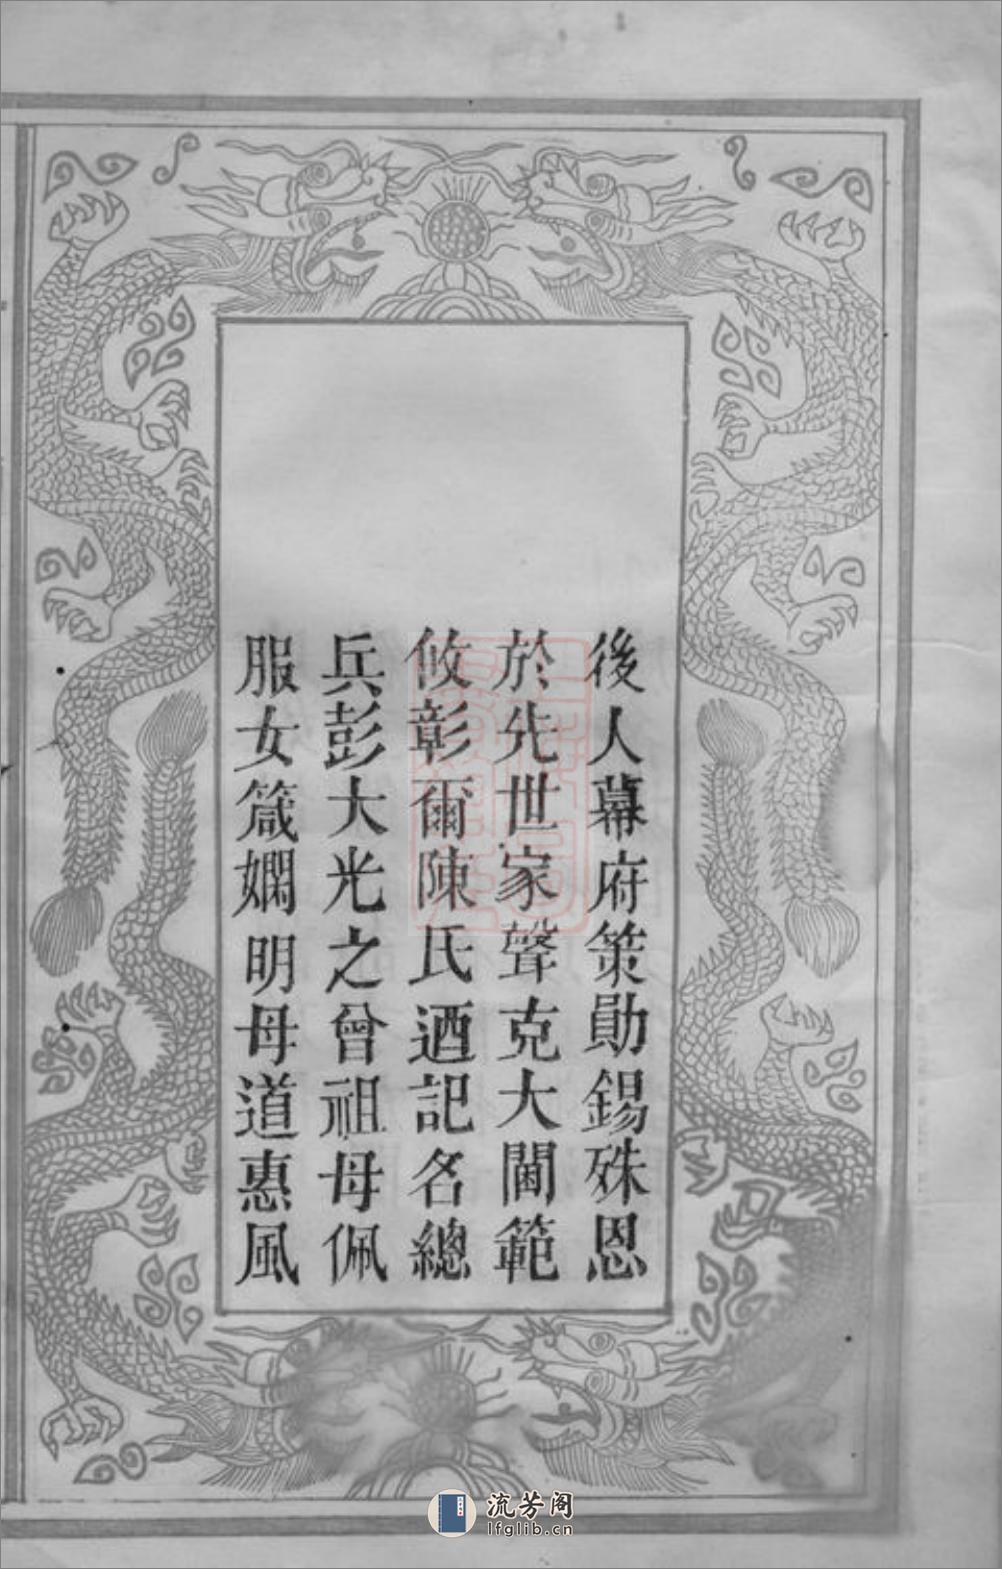 後人幕府策勛錫殊恩
於先世家聲克大閫範
攸彰爾陳氏迺記名總
兵彭大光之曾祖母佩
服女箴嫻明母道惠風
流芳阁
lfglib.cn